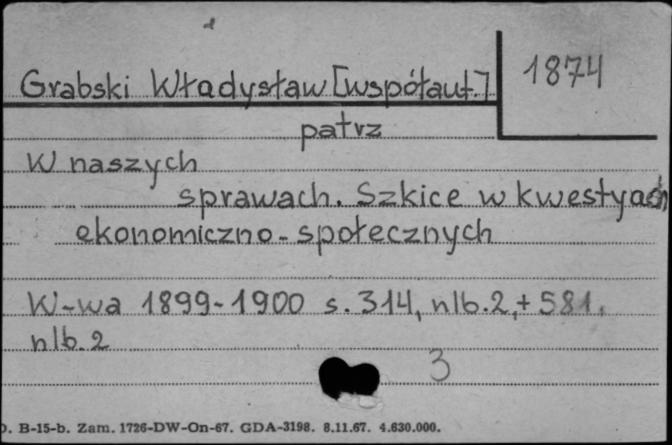 Grabski Władysław [współaut.]
1874
patrz
W naszych
sprawach. Szkice w kwestyach
ekonomiczno-społecznych
W-wa 1899-1900 s. 314, nlb.2,+ 581,
nlb. 2
3
D. B-15-b. Zam. 1726-DW-On-67. GDA-3198. 8.11.67. 4.630.000.